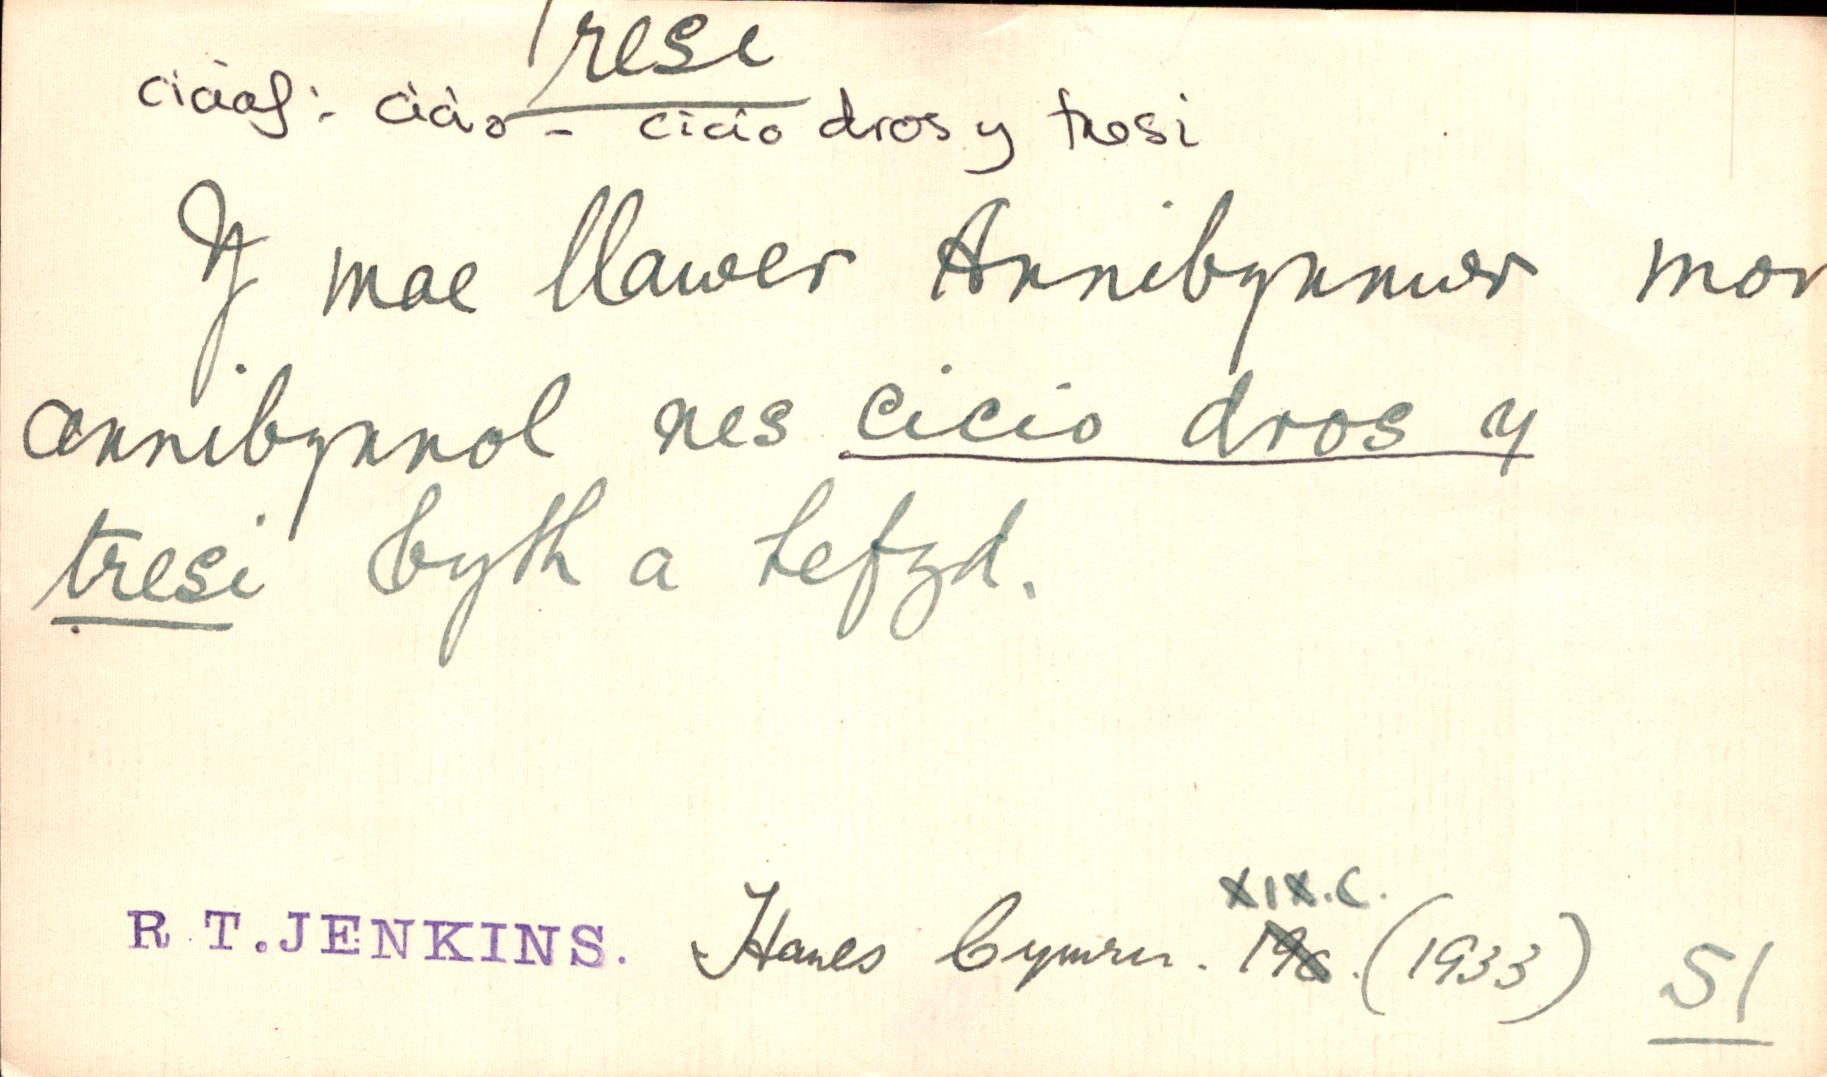 Tresi
ciciaf: cicio - cicio dros y tresi
Y mae llawer Annibynnwr mor
annibynnol nes cicio dros y
tresi byth a hefyd.
XIX.C.
R. T. JENKINS. Hanes Cymru. 19g. (1933) 51